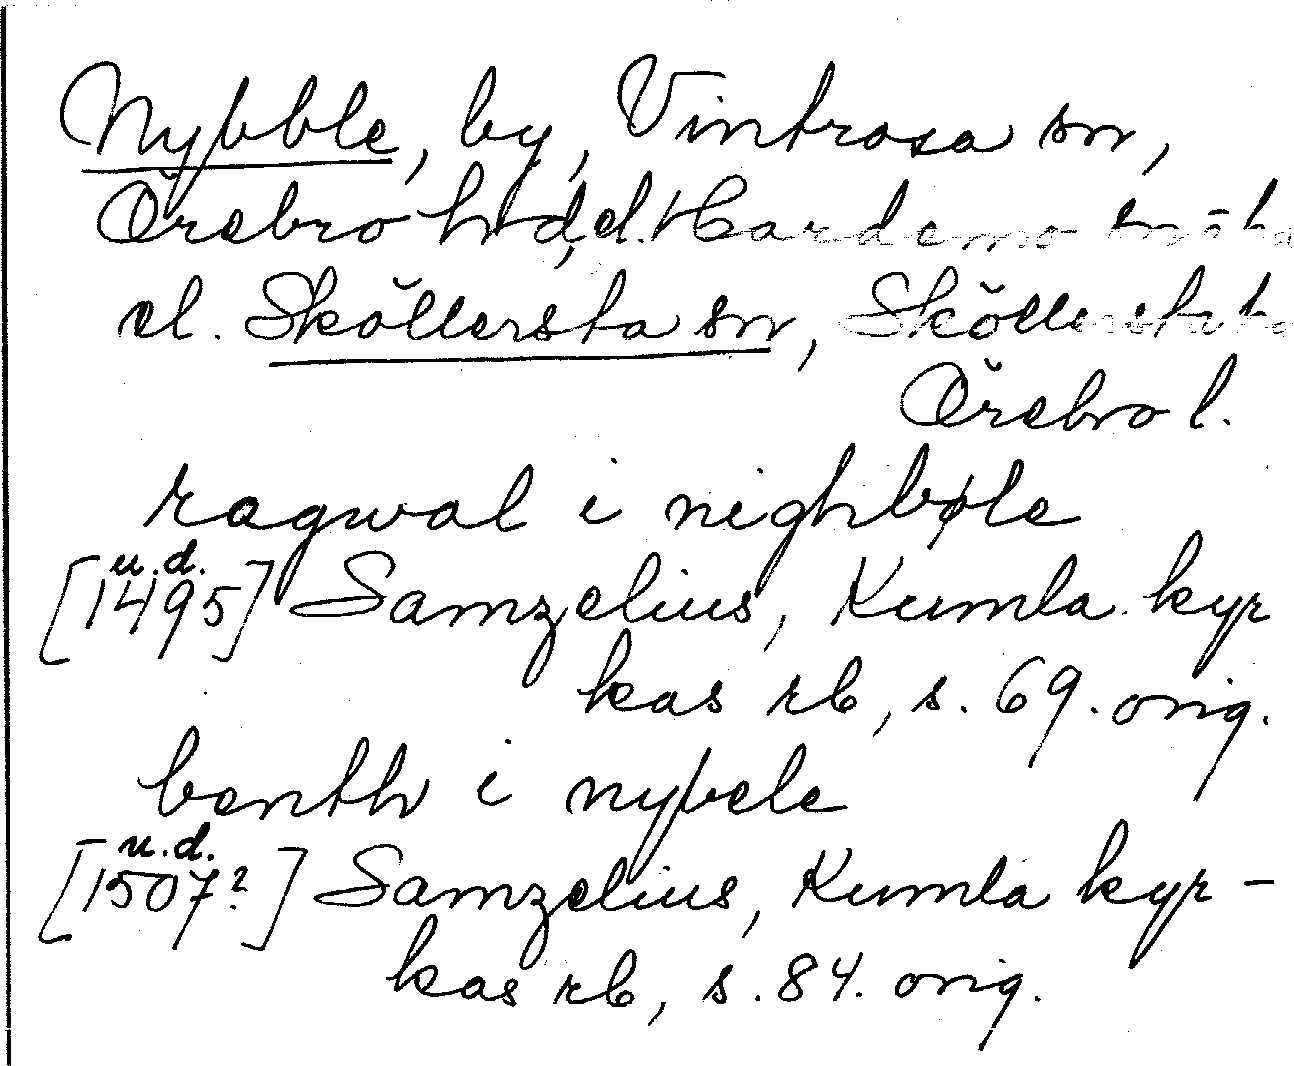 Nybble, by, Vintrosa sn,
Örebro hd, el. Hardemo sn
el. Sköllersta sn, Sköllersta
Örebro l.
ragwal i nighbøle
[u.d. 1495] Samzelius, Kumla kyr
kas rb, s. 69. orig.
benth i nybele
[u.d. 1507?] Samzelius, Kumla kyr-
kas rb, s. 84. orig.